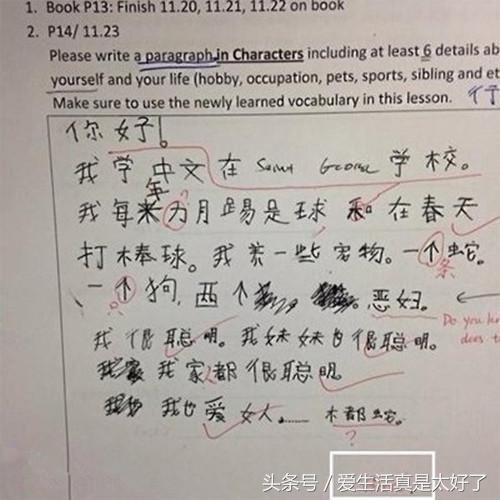 1. Book P13: Finish 11.20, 11.21, 11.22 on book
2. P14/ 11.23
Please write a paragraph in Characters including at least 6 details ab
yourself and your life (hobby, occupation, pets, sports, sibling and et
Make sure to use the newly learned vocabulary in this lesson.
你好!
我学中文在 Saint George 学校。
年
我每 力月踢是球 和在春天
打棒球。我养一些宠物。一个蛇。
条
一个狗, 两个 恶妇。
Do you kn
does t
我很聪明。我妹妹也很聪明。
我家都很聪明
我也爱女人…… 木都蛇。
?
头条号/爱生活真是太好了